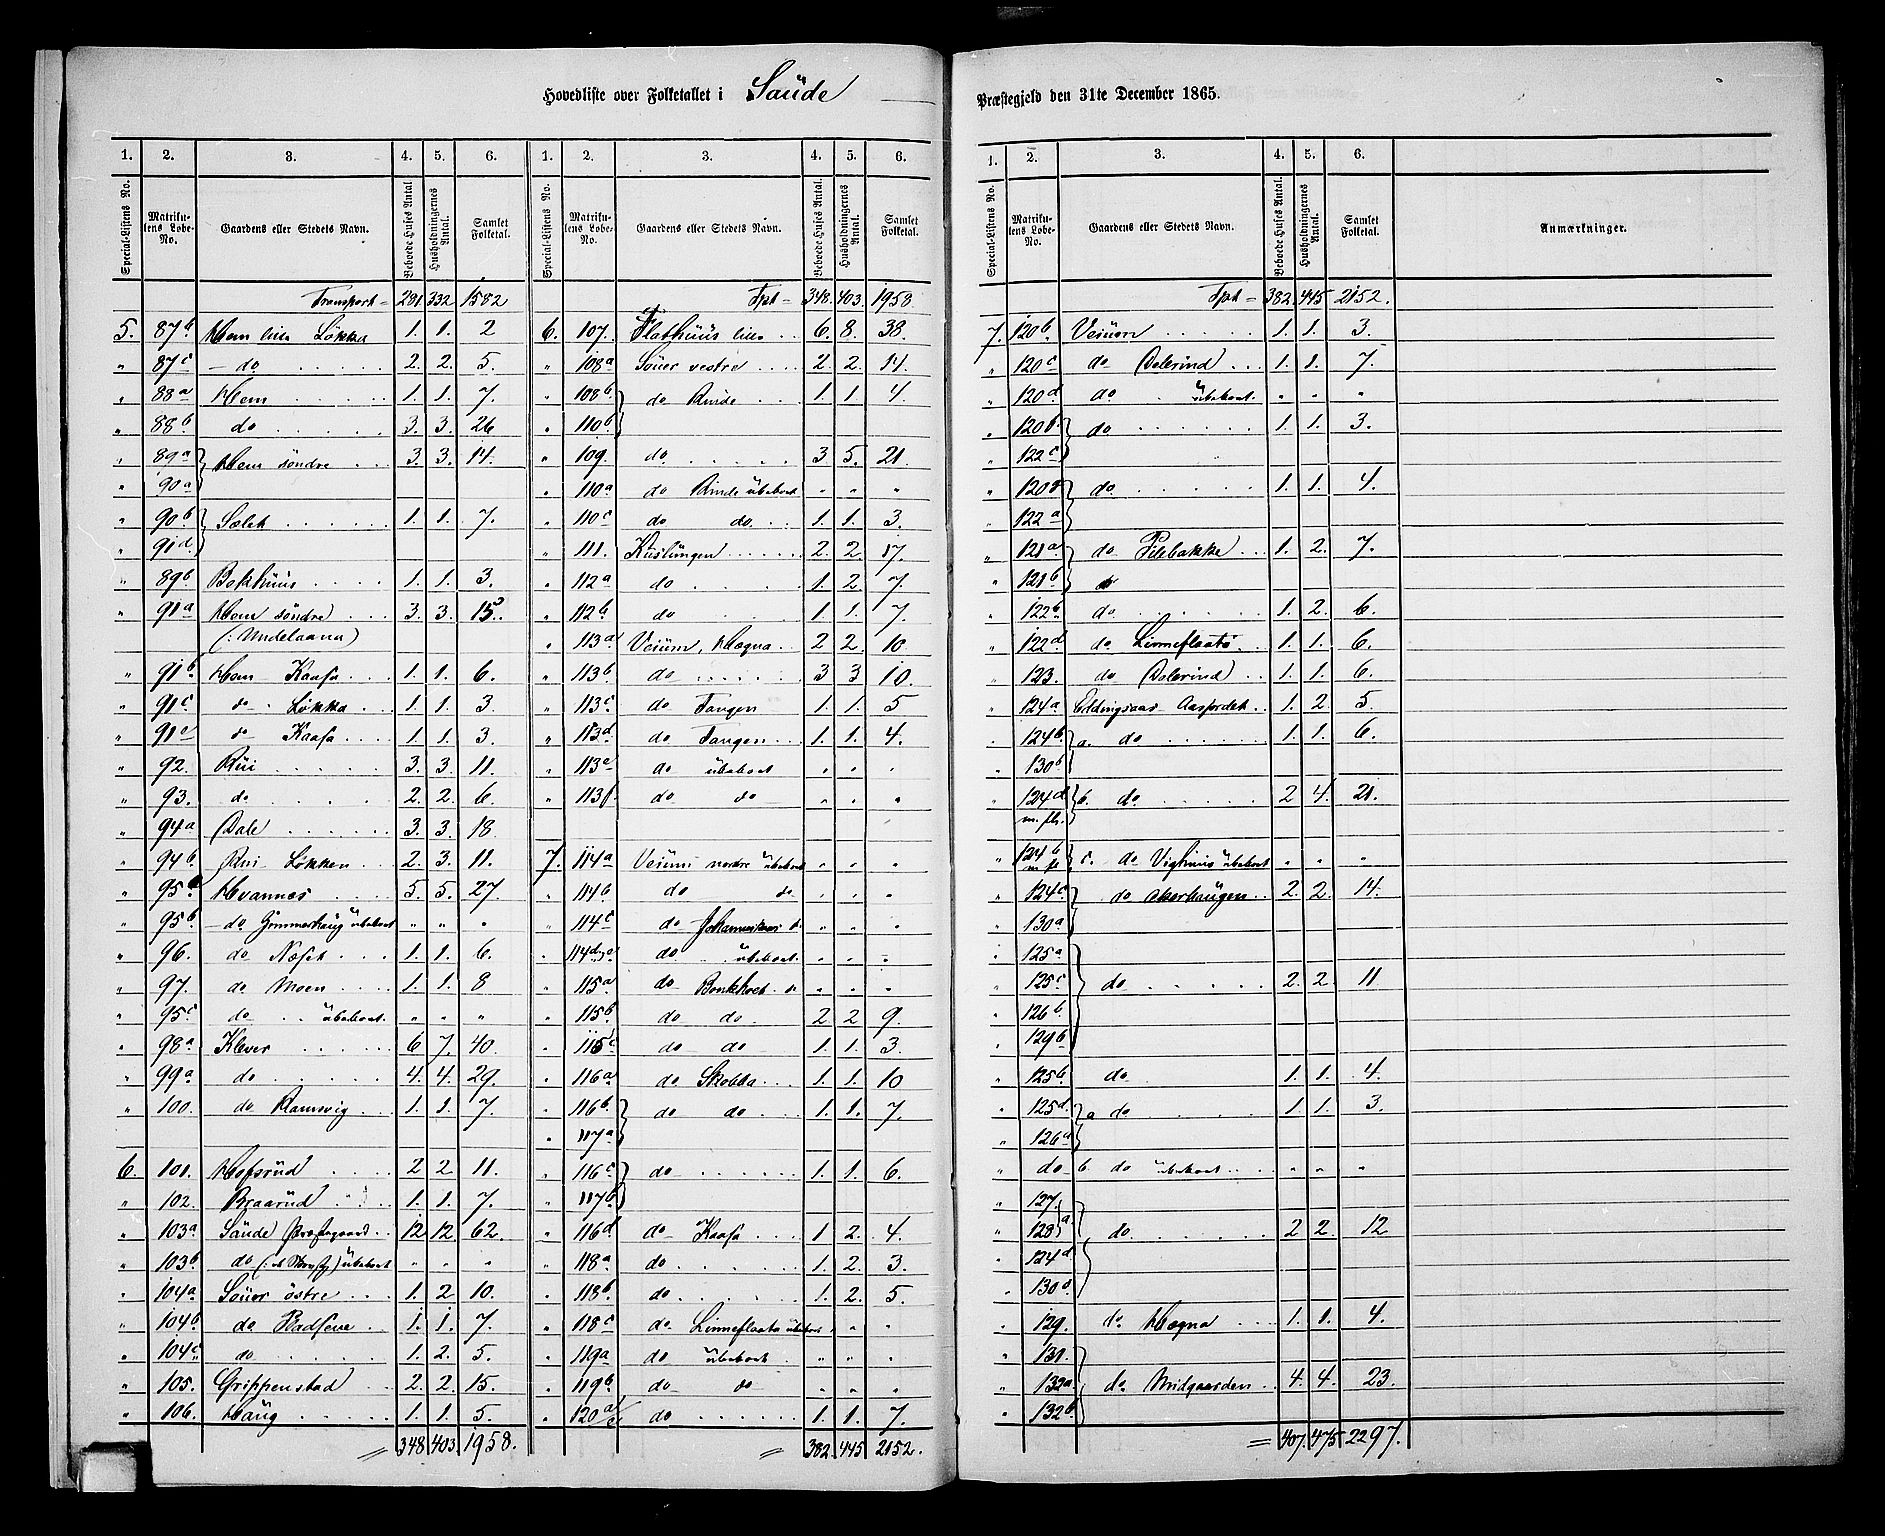 Hovedliste over Folketallet i Saude
1. 2. 3. 4. 5. 6. 1. 2. 3. 4. 5. 6.
Special-Listens No. Matrikulens Løbe-No. Gaardens eller Stedets Navn. Beboede Huses Antal. Husholdningernes Antal. Samlet Folketal. Special-Listens No. Matrikulens Løbe-No. Gaardens eller Stedets Navn. Beboede Huses Antal. Husholdningernes Antal. Samlet Folketal.
Transport = 291. 332 1582
5. 87b Hem lille Løkka 1. 1. 2
" 87c do 2. 2. 5.
" 88a Hem 1. 1. 7.
" 88b do 3. 3. 26
" 89a Hem søndre 3. 3. 14.
" 90a
" 90b Sølek 1. 1. 7.
" 91d
" 89b Bakhuus 1. 1. 3.
" 91a Hem søndre 3. 3. 15.
(: Undelaana)
" 91b Hem Kaasa 1. 1. 6.
" 91c do Løkka 1. 1. 3.
" 91e do Kaasa 1. 1. 3.
" 92. Rui 3. 3. 11.
" 93. do 2. 2. 6.
" 94a Dale 3. 3. 18
" 94b Rui Løkken 2. 3. 11.
" 95a Hvannes 5. 5. 27
" 95b do Gommerhaug übeboet " " "
" 96. do Næset 1. 1. 6.
" 97. do Moen 1. 1. 8
" 95c do übeboet " " "
" 98a Klever 6 7. 40.
" 99a do 4. 4. 29.
" 100. do Ramsvig 1. 1. 7.
6. 101. Hofsrüd 2 2 11.
" 102. Braarüd 1. 1. 7.
" 103a Saude Præstegaard 12 12 62.
" 103b do übeboet " " "
" 104a Souer østre 1. 2 10.
" 104b do Badseve 1. 1. 7.
" 104c do 1. 2. 5.
" 105. Grippenstad 2. 2. 15.
" 106. Haug 1. 1. 5.
= 348 403 1958.
Tpt = 348. 403. 1958.
6. 107. Flathuus lille 6. 8. 38.
" 108a Souer vestre 2. 2. 14.
" 108b do Rinde 1. 1. 4.
" 110b
" 109. do 3 5. 21.
" 110a do Rinde übeboet " " "
" 110c do do 1. 1. 3.
" 111. Kuslungen 2. 2. 17.
" 112a do 1. 2. 7.
" 112b do 1. 1. 7.
" 113a Veium, Høgna 2 2. 10
" 113b do 3 3 10.
" 113c do Tangen 1. 1. 5
" 113d do Tangen 1. 1. 4.
" 113e do übeboet " " "
" 113f. do do " " "
7. 114a Veium nordre übeboet " " "
" 114b do do " " "
" 114c do do " " "
" 114d,e do übeboet " " "
" 115a do Bonkhoet do " " "
" 115b do do 2 2 9.
" 115c do do 1. 1. 3.
" 116a do Skobba 1. 1. 10
" 116b do do 1. 1. 7.
" 117a
" 116c do 1. 1. 6.
" 117b
" 116d do Kaasa 1 2. 4.
" 118a do 1. 2 3.
" 118b do 1. 2. 5.
" 118c do Linneflaata übeboet " " "
" 119a do übeboet " " "
" 119b do do " " "
" 120a/e do 1. 1. 7.
= 382 445 2152.
Præstegjeld den 31te December 1865.
1. 2. 3. 4. 5. 6.
Special-Listens No. Matrikulens Løbe-No. Gaardens eller Stedets Navn. Beboede Huses Antal. Husholdningernes Antal. Samlet Folketal. Anmærkninger.
Tpt = 382. 445 2152.
7. 120b Veium 1. 1. 3.
" 120c do Dalerind 1. 1. 7.
" 120d do übeboet " " "
" 120f. do 1. 1. 3.
" 122c
" 120g do 1. 1. 4.
" 122a
" 121a do Pilebakke 1. 2. 7.
" 121b do
" 122b do 1. 2. 6.
" 122d do Linneflaata 1. 1. 6.
" 123. do Dalerind 1. 1. 6.
" 124a Eddingsaas Aasfordet 1. 2. 5.
" 124b a. do 1. 1. 6.
" 130b
" 124d b. do 2 4. 21.
m. fl.
" 124b m. fl. c. do Vighuus übeboet " " "
" 124c do Akerhaugen 2. 2. 14.
" 130a
" 125a
" 125c do 2. 2. 11
" 126b.
" 129b
" 125b do 1. 1. 4.
" 125d. a do 1. 1. 3.
" 126a
" do b. do übeboet " " "
" 127.
" 128a do 2 2. 12
" 124d
" 130d.
" 129. do Høgna 1. 1. 4.
" 131.
" 132a do Midgaarden 4. 4. 23.
" 132b.
= 407. 475 2297.